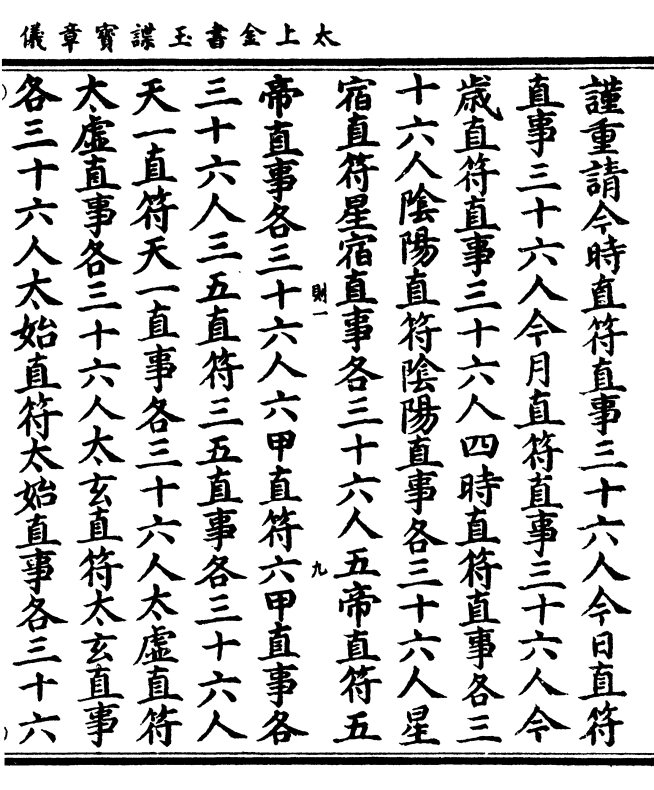 太上金書玉諜寶章儀
謹重請今時直符直事三十六人今日直符
直事三十六人今月直符直事三十六人今
歲直符直事三十六人四時直符直事各三
十六人陰陽直符陰陽直事各三十六人星
宿直符星宿直事各三十六人五帝直符五
則一
九
帝直事各三十六人六甲直符六甲直事各
三十六人三五直符三五直事各三十六人
天一直符天一直事各三十六人太虛直符
太虛直事各三十六人太玄直符太玄直事
各三十六人太始直符太始直事各三十六